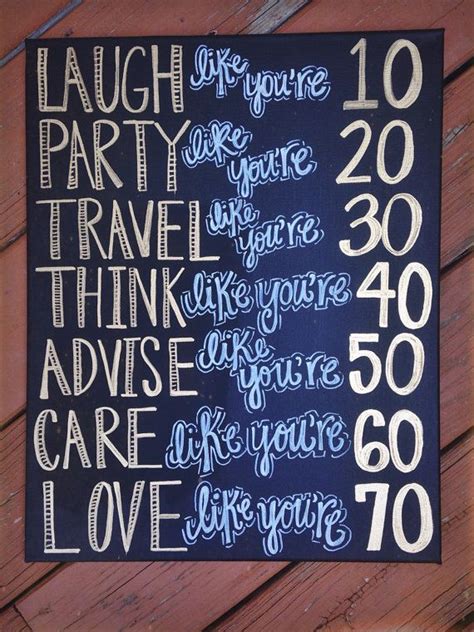 LAUGH like you're 10
PARTY like you're 20
TRAVEL like you're 30
THINK like you're 40
ADVISE like you're 50
CARE like you're 60
LOVE like you're 70